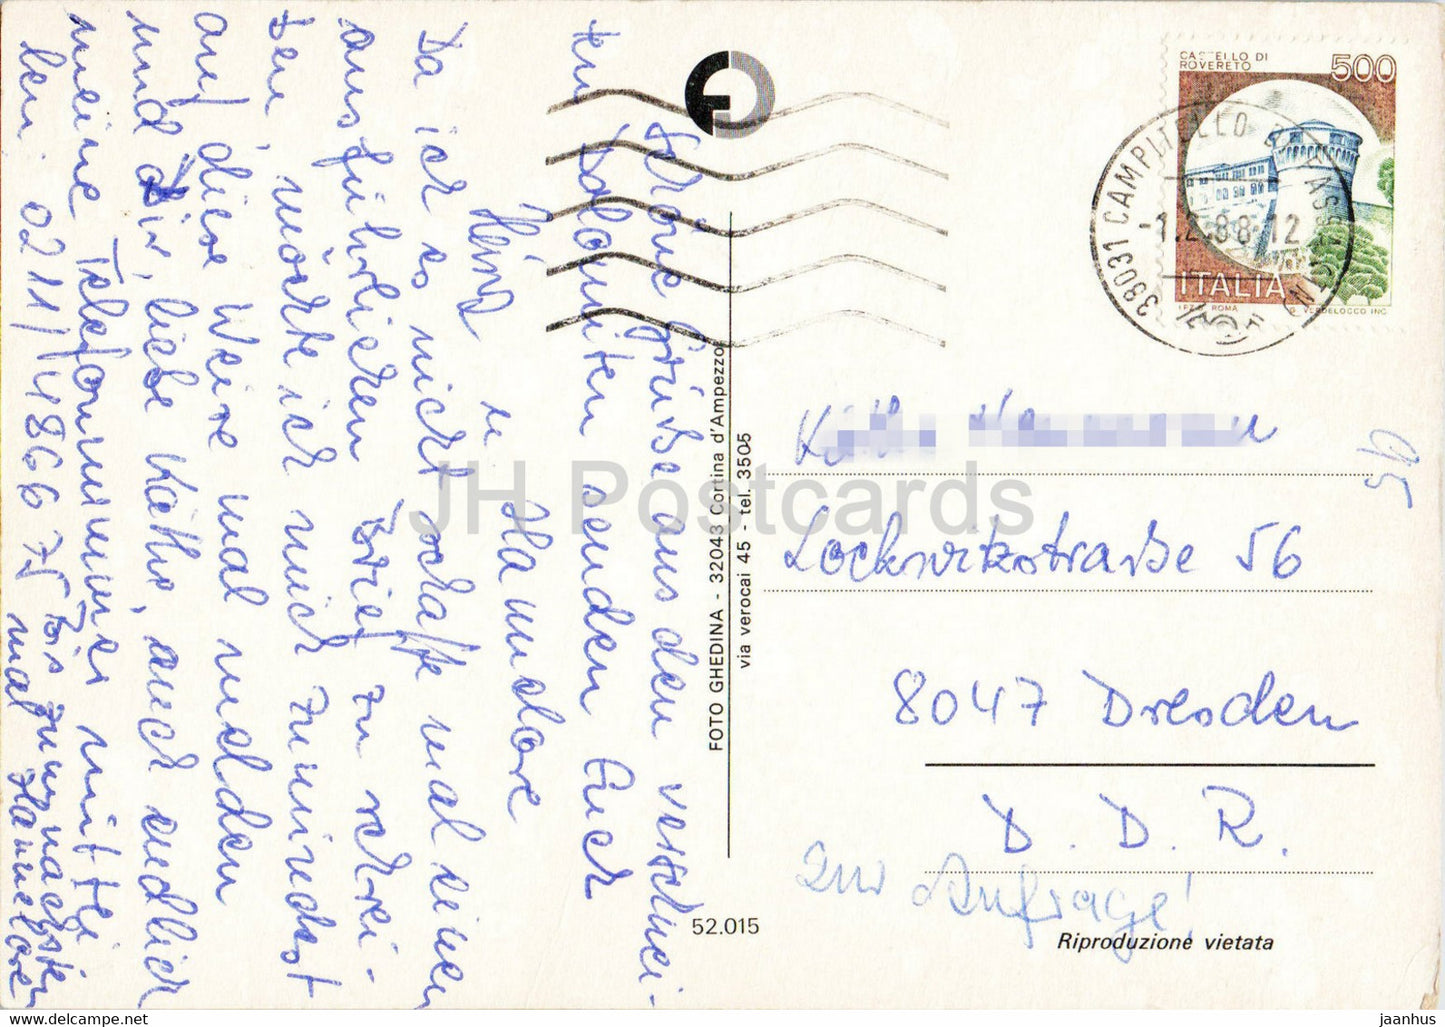 Schöne Grüße aus den verschnei-
ten Dolomiten senden Euch
Heinz u. Hannelore
Da ich es nicht schaffe mal einen
ausführlichen Brief zu schrei-
ben, möchte ich mich zumindest
auf diese Weise mal melden
und dir, liebe Käthe, auch endlich
meine Telefonnummer mittei-
len: 0211/486675 Bis zum nächsten
mal Hannelore
CASTELLO DI
ROVERETO
500
ITALIA
I.P.Z.S. ROMA
G. VERDELOCCO INC.
38031 CAMPITELLO
-1.2.88-12
95
Lockwitzstraße 56
8047 Dresden
D. D. R.
zur Anfrage!
Riproduzione vietata
52.015
FOTO GHEDINA - 32043 Cortina d'Ampezzo
via verocai 45 - tel. 3505
JH Postcards
jaanhus - https://www.jaanhus.com